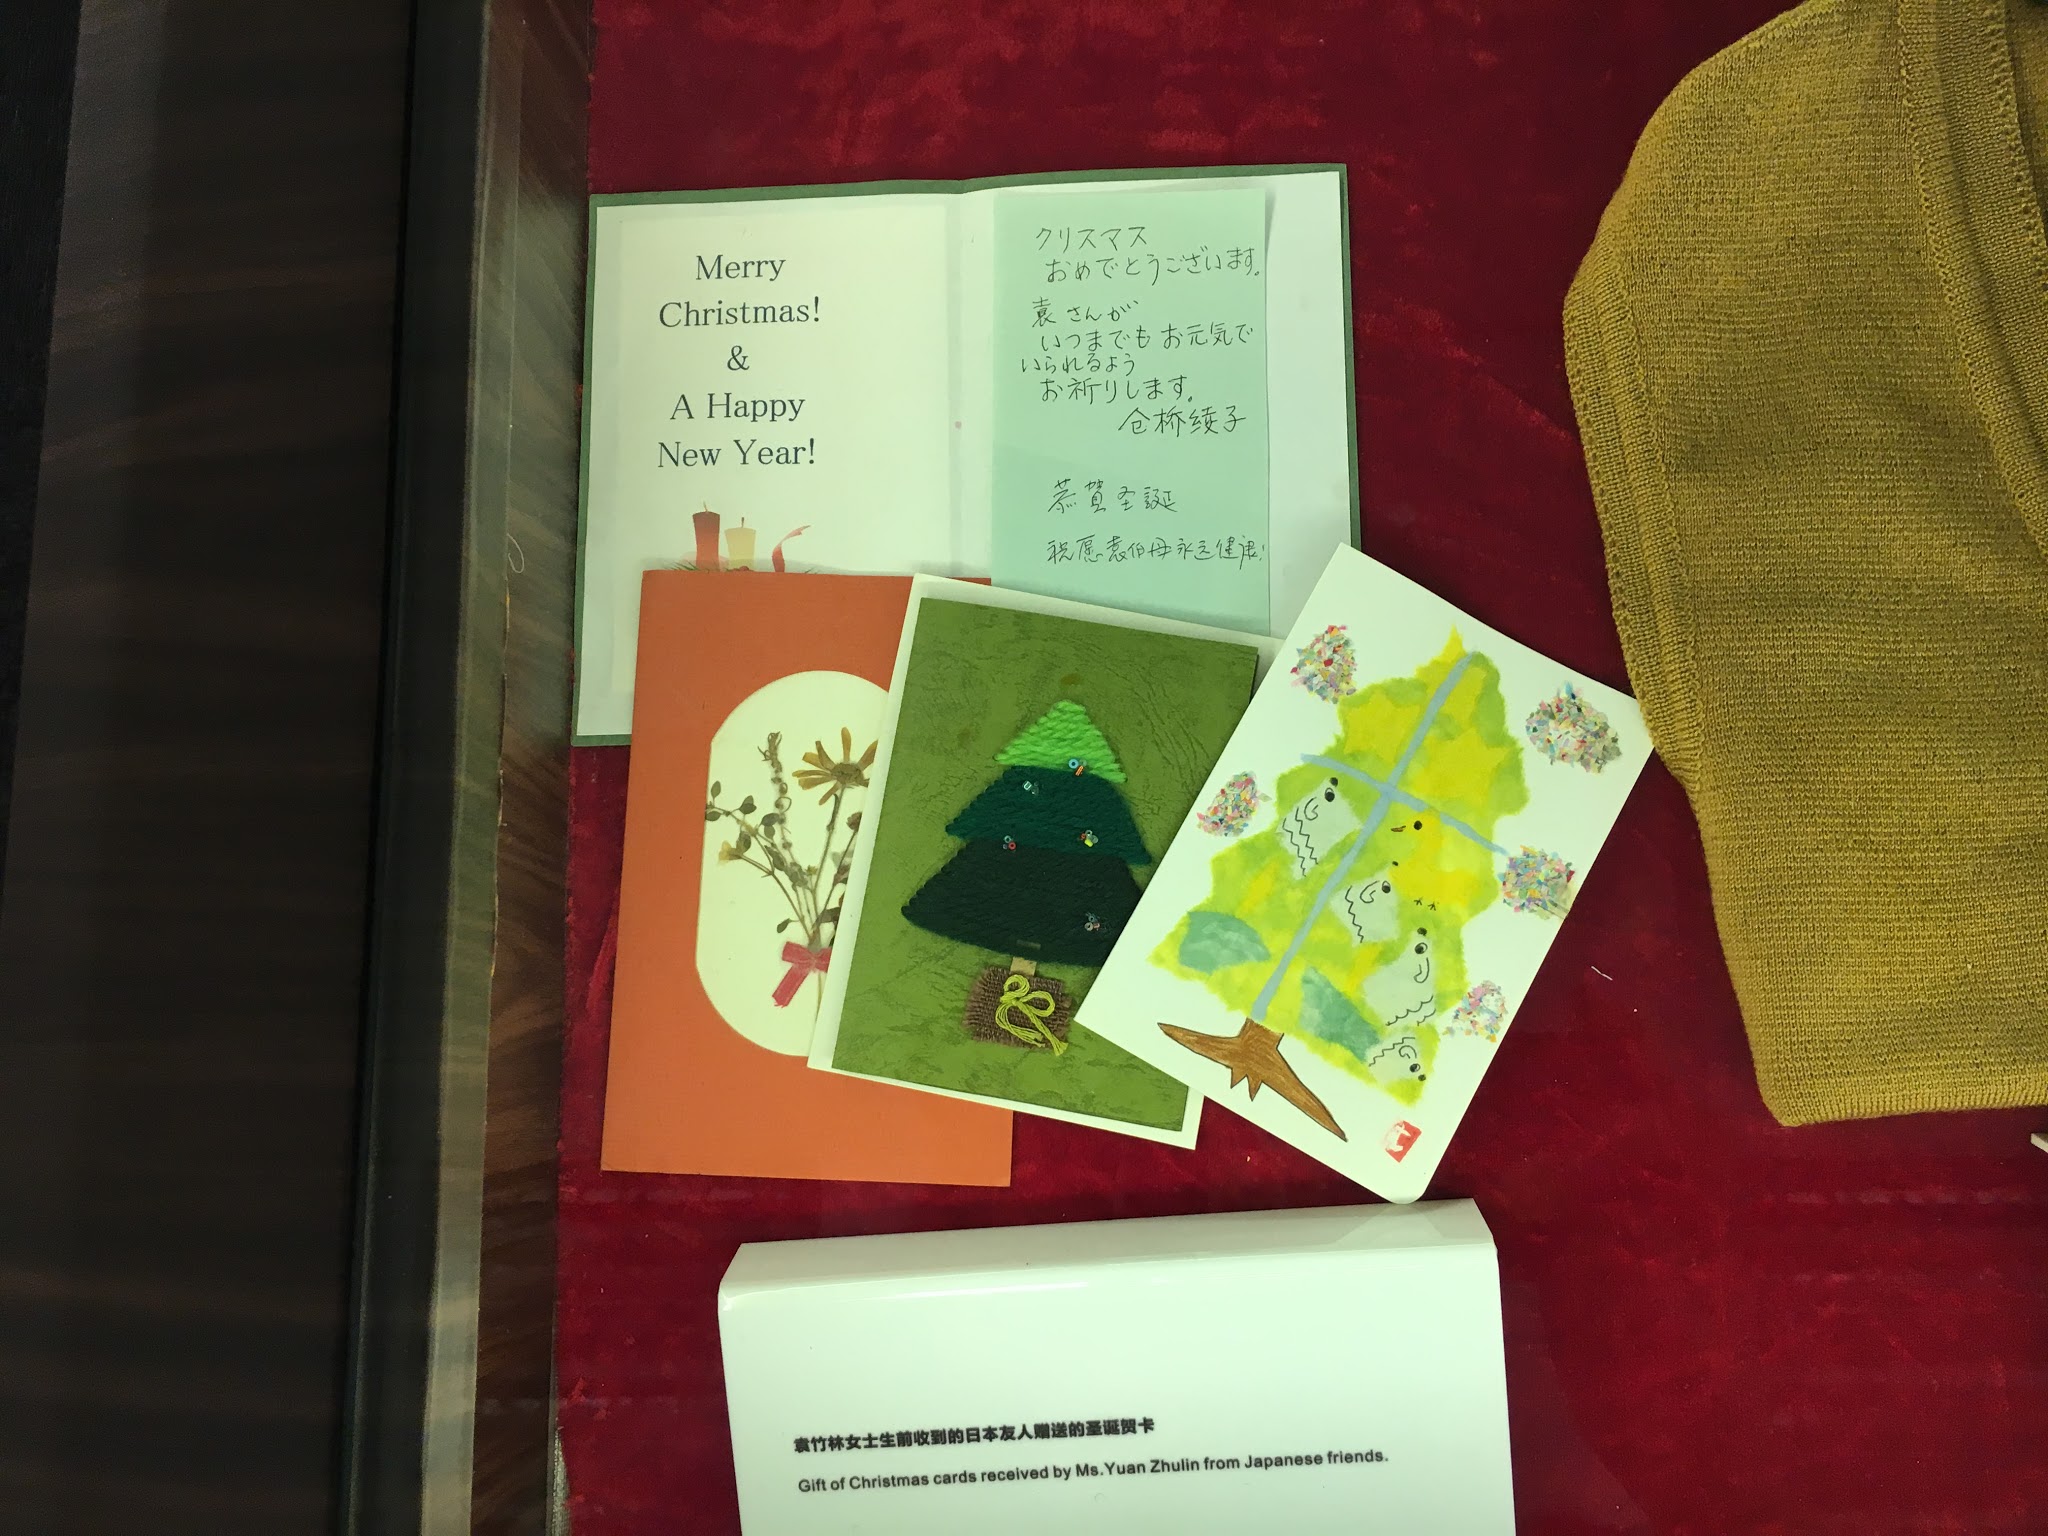 Merry
Christmas!
&
A Happy
New Year!
クリスマス
おめでとうございます。
袁さんが
いつまでもお元気で
いられるよう
お祈りします。
仓桥綾子
恭賀圣誕
祝愿袁伯母永远健康!
袁竹林女士生前收到的日本友人赠送的圣诞贺卡
Gift of Christmas cards received by Ms.Yuan Zhulin from Japanese friends.